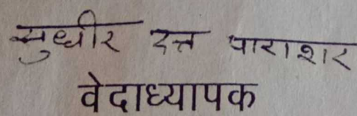 सुधीर दत्त पाराशर
वेदाध्यापक